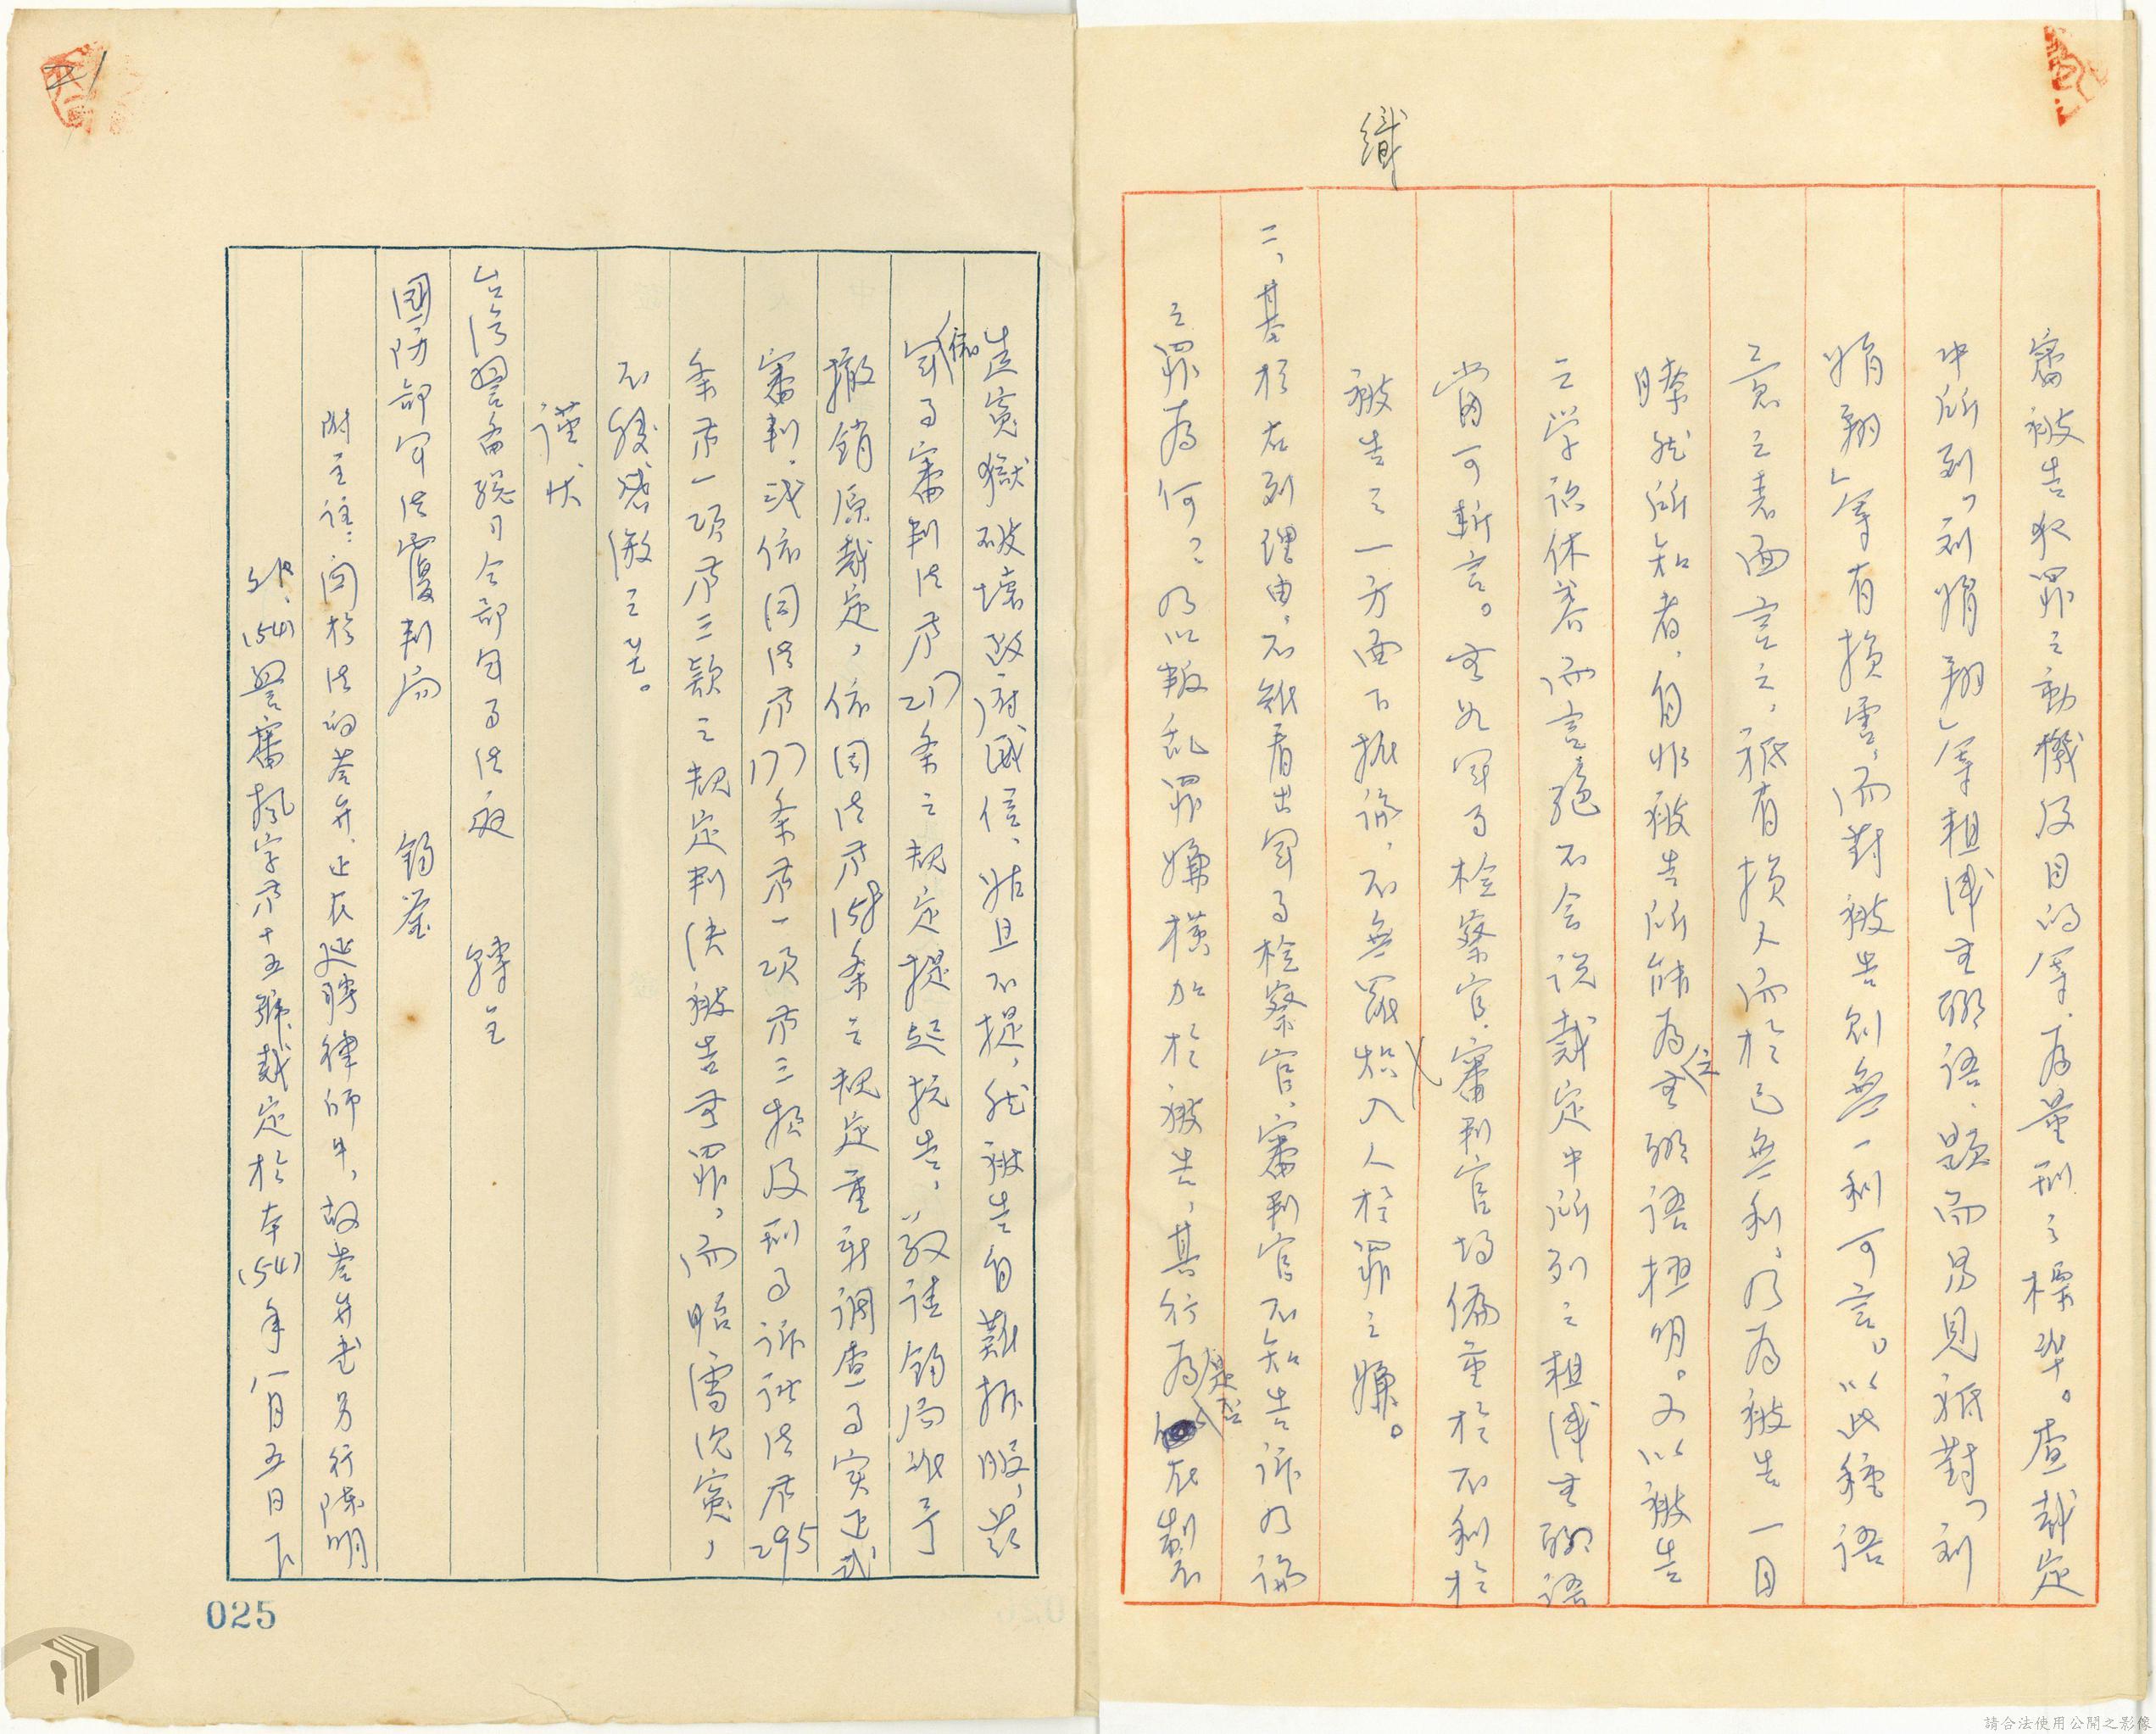 織
審被告犯罪之動機及目的等,為量刑之標準。查裁定
中所列,「刘情翔」等粗俾圣聊語,顯而易見祇對「刘
情翔」等有損害,而對被告則無一利可言。以此種語
意之表面言之,祇有損人而於己無利,乃為被告一目
瞭然所知者,自非被告所能為之至聊語極明。又以被告
之学識休養而言絕不会說裁定中所列之粗俾圣聊語
當可斷言。查如军司檢察官、審判官均偏重於不利於
被告之一方面下推論,不無羅炽入人於罪之嫌。
二、基於右列理由,不难看出军司檢察官、審判官不知告訴乃論
之罪為何?乃以叛乱罪嫌橫加於被告,其行為是否在製
造寃獄破壞政府威信,姑且不提,然被告自難折服,兹
依军司審判法第217条之規定提起抗告,敬請鈞局准予
撤銷原裁定,依同法第158条之規定重新調查事实还或
審判,或依同法第177条第一項第三款及刑事訴訟法第295
条第一項第三款之規定判决被告無罪,而昭雪沈寃,
不勝感激之至。
謹狀
台湾警備総司令部军事法庭 轉呈
國防部军法覆判局 鈞鉴
附呈註:関於法的卷弁,正在延聘律師中,故答弁書另行陳明
外、(54)警審振字第十五號裁定於本(54)年八月五日下
025
21
請合法使用公開之影像